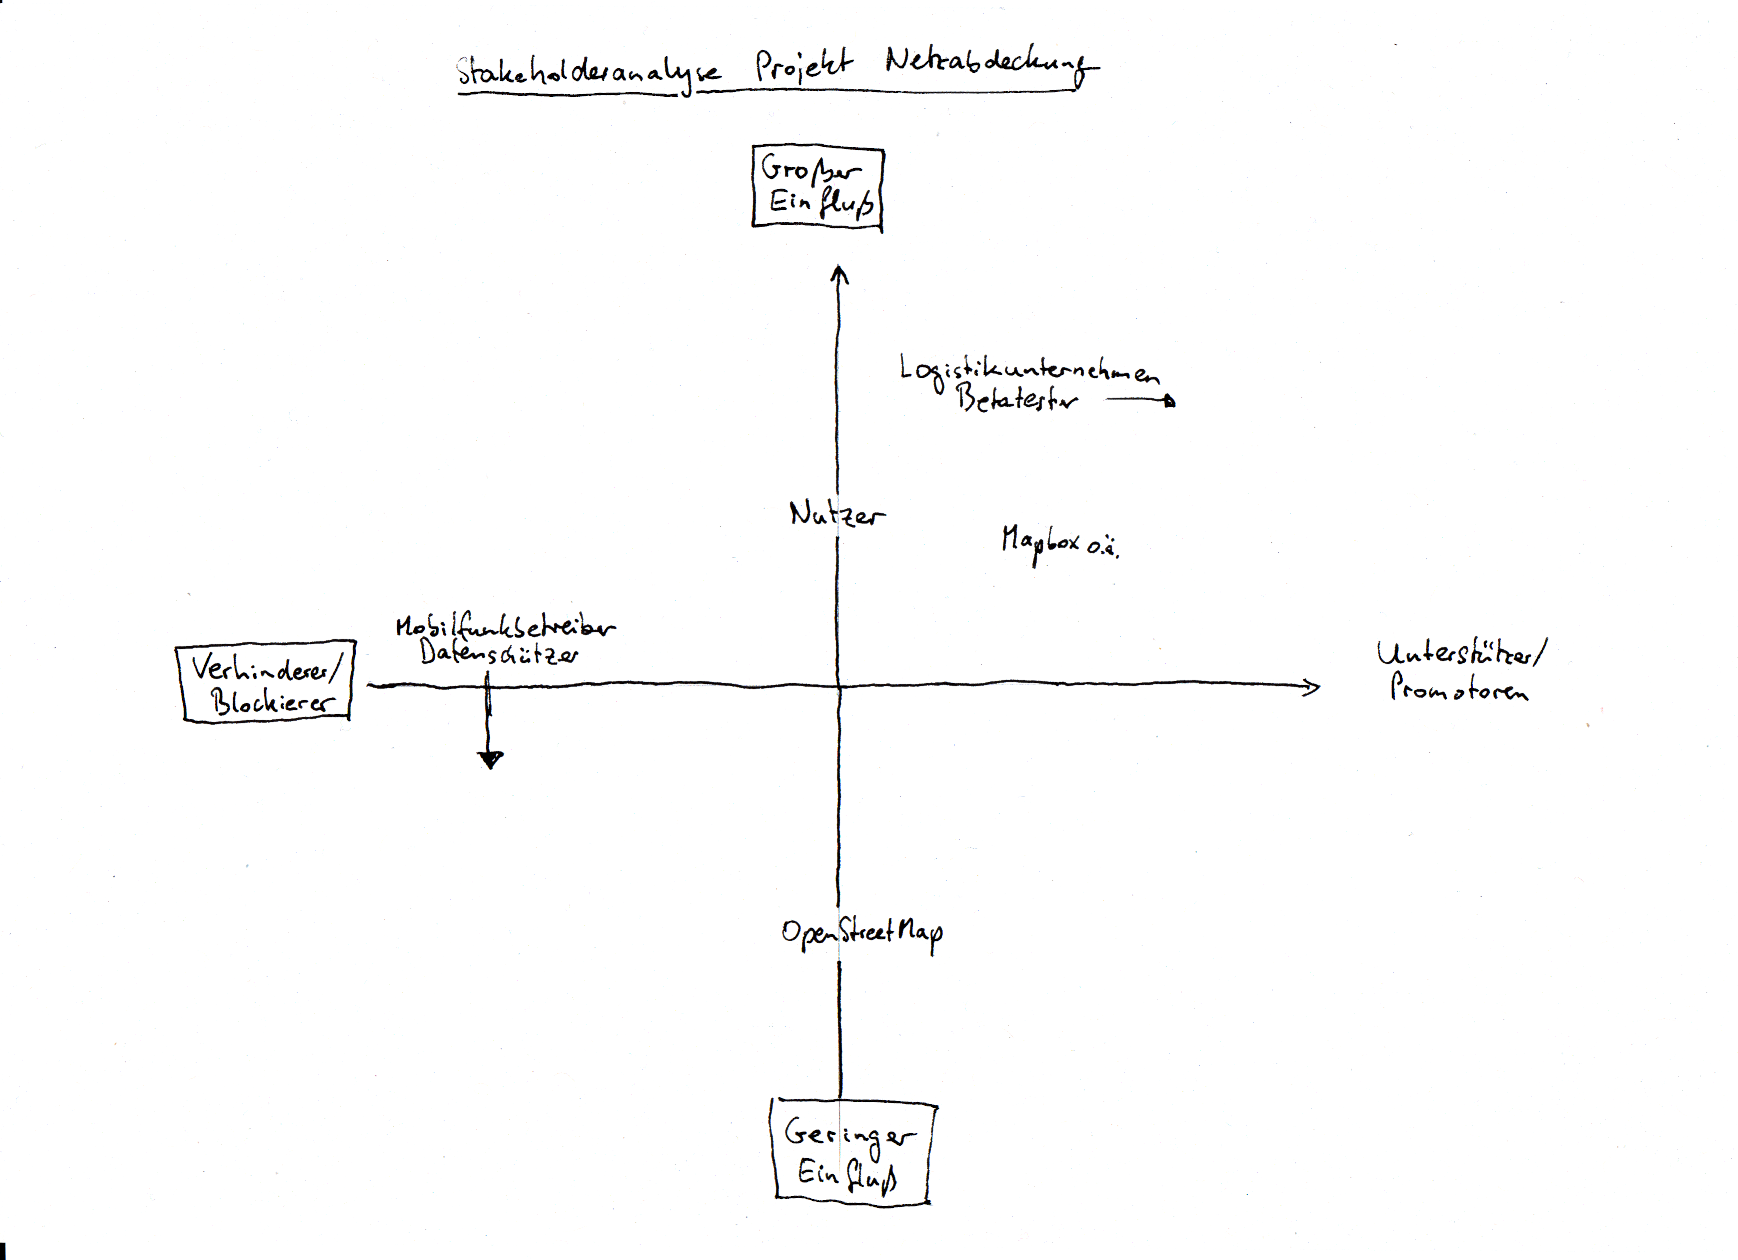 Stakeholderanalyse Projekt Netzabdeckung
Großer
Einfluß
Logistikunternehmen
Betatester
Nutzer
Mapbox o.ä.
Mobilfunkbetreiber
Datenschützer
Verhinderer/
Blockierer
Unterstützer/
Promotoren
OpenStreetMap
Geringer
Einfluß